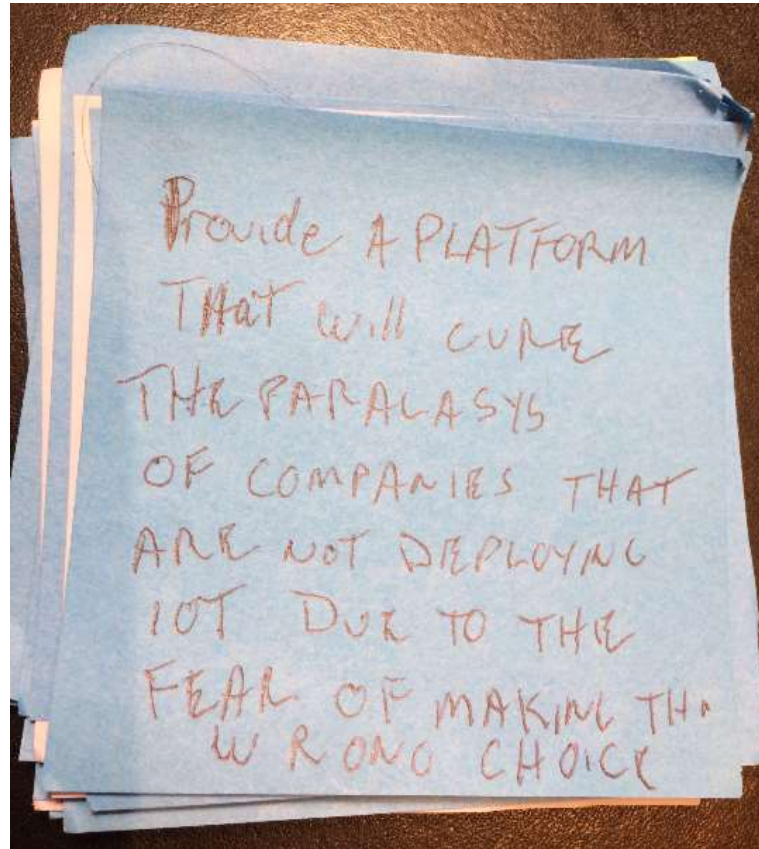 Provide A PLATFORM
THAT will CURE
THE PARALASYS
OF COMPANIES THAT
ARE NOT DEPLOYING
IOT DUE TO THE
FEAR OF MAKING THE
WRONG CHOICE